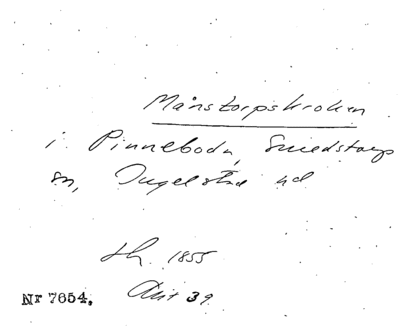 Månstorpskroken
i Pinneboda, Smedstorps
sn, Ingelstad hd
1855
Nr 7654. Akt 39